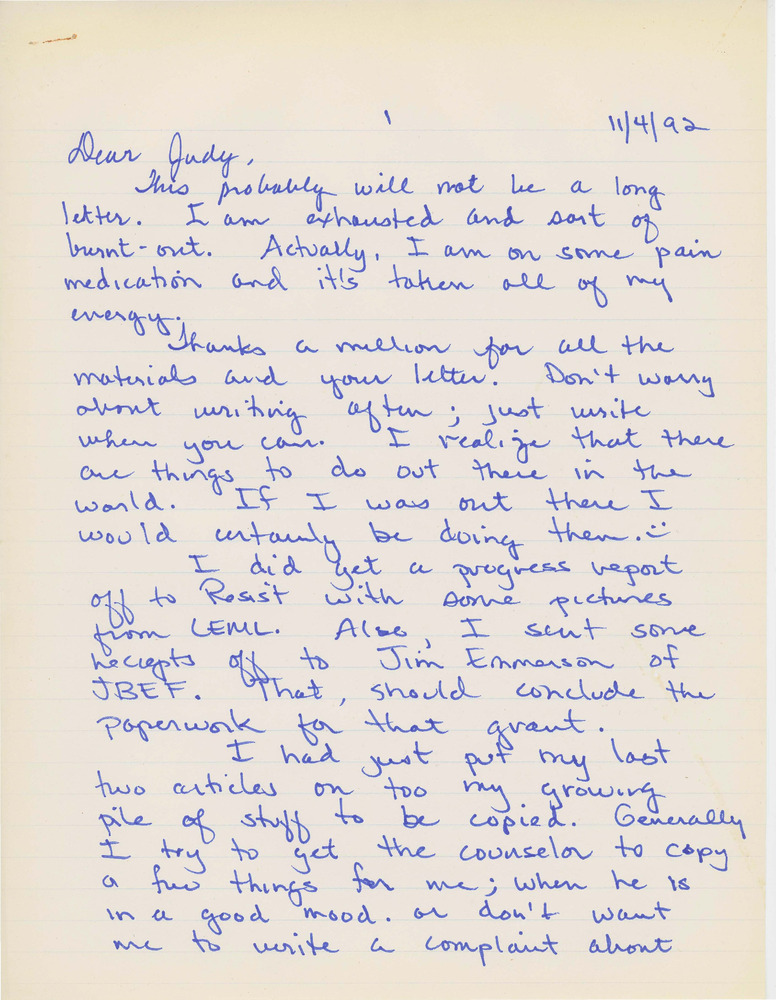 1
11/4/92
Dear Judy,
This probably will not be a long
letter. I am exhausted and sort of
burnt-out. Actually, I am on some pain
medication and it's taken all of my
energy.
Thanks a million for all the
materials and your letter. Don't worry
about writing often; just write
when you can. I realize that there
are things to do out there in the
world. If I was out there I
would certainly be doing them. :)
I did get a progress report
off to Resist with some pictures
from LEML. Also, I sent some
reciepts off to Jim Emmerson of
JBEF. That, should conclude the
paperwork for that grant.
I had just put my last
two articles on too my growing
pile of stuff to be copied. Generally
I try to get the counselor to copy
a few things for me; when he is
in a good mood. or don't want
me to write a complaint about